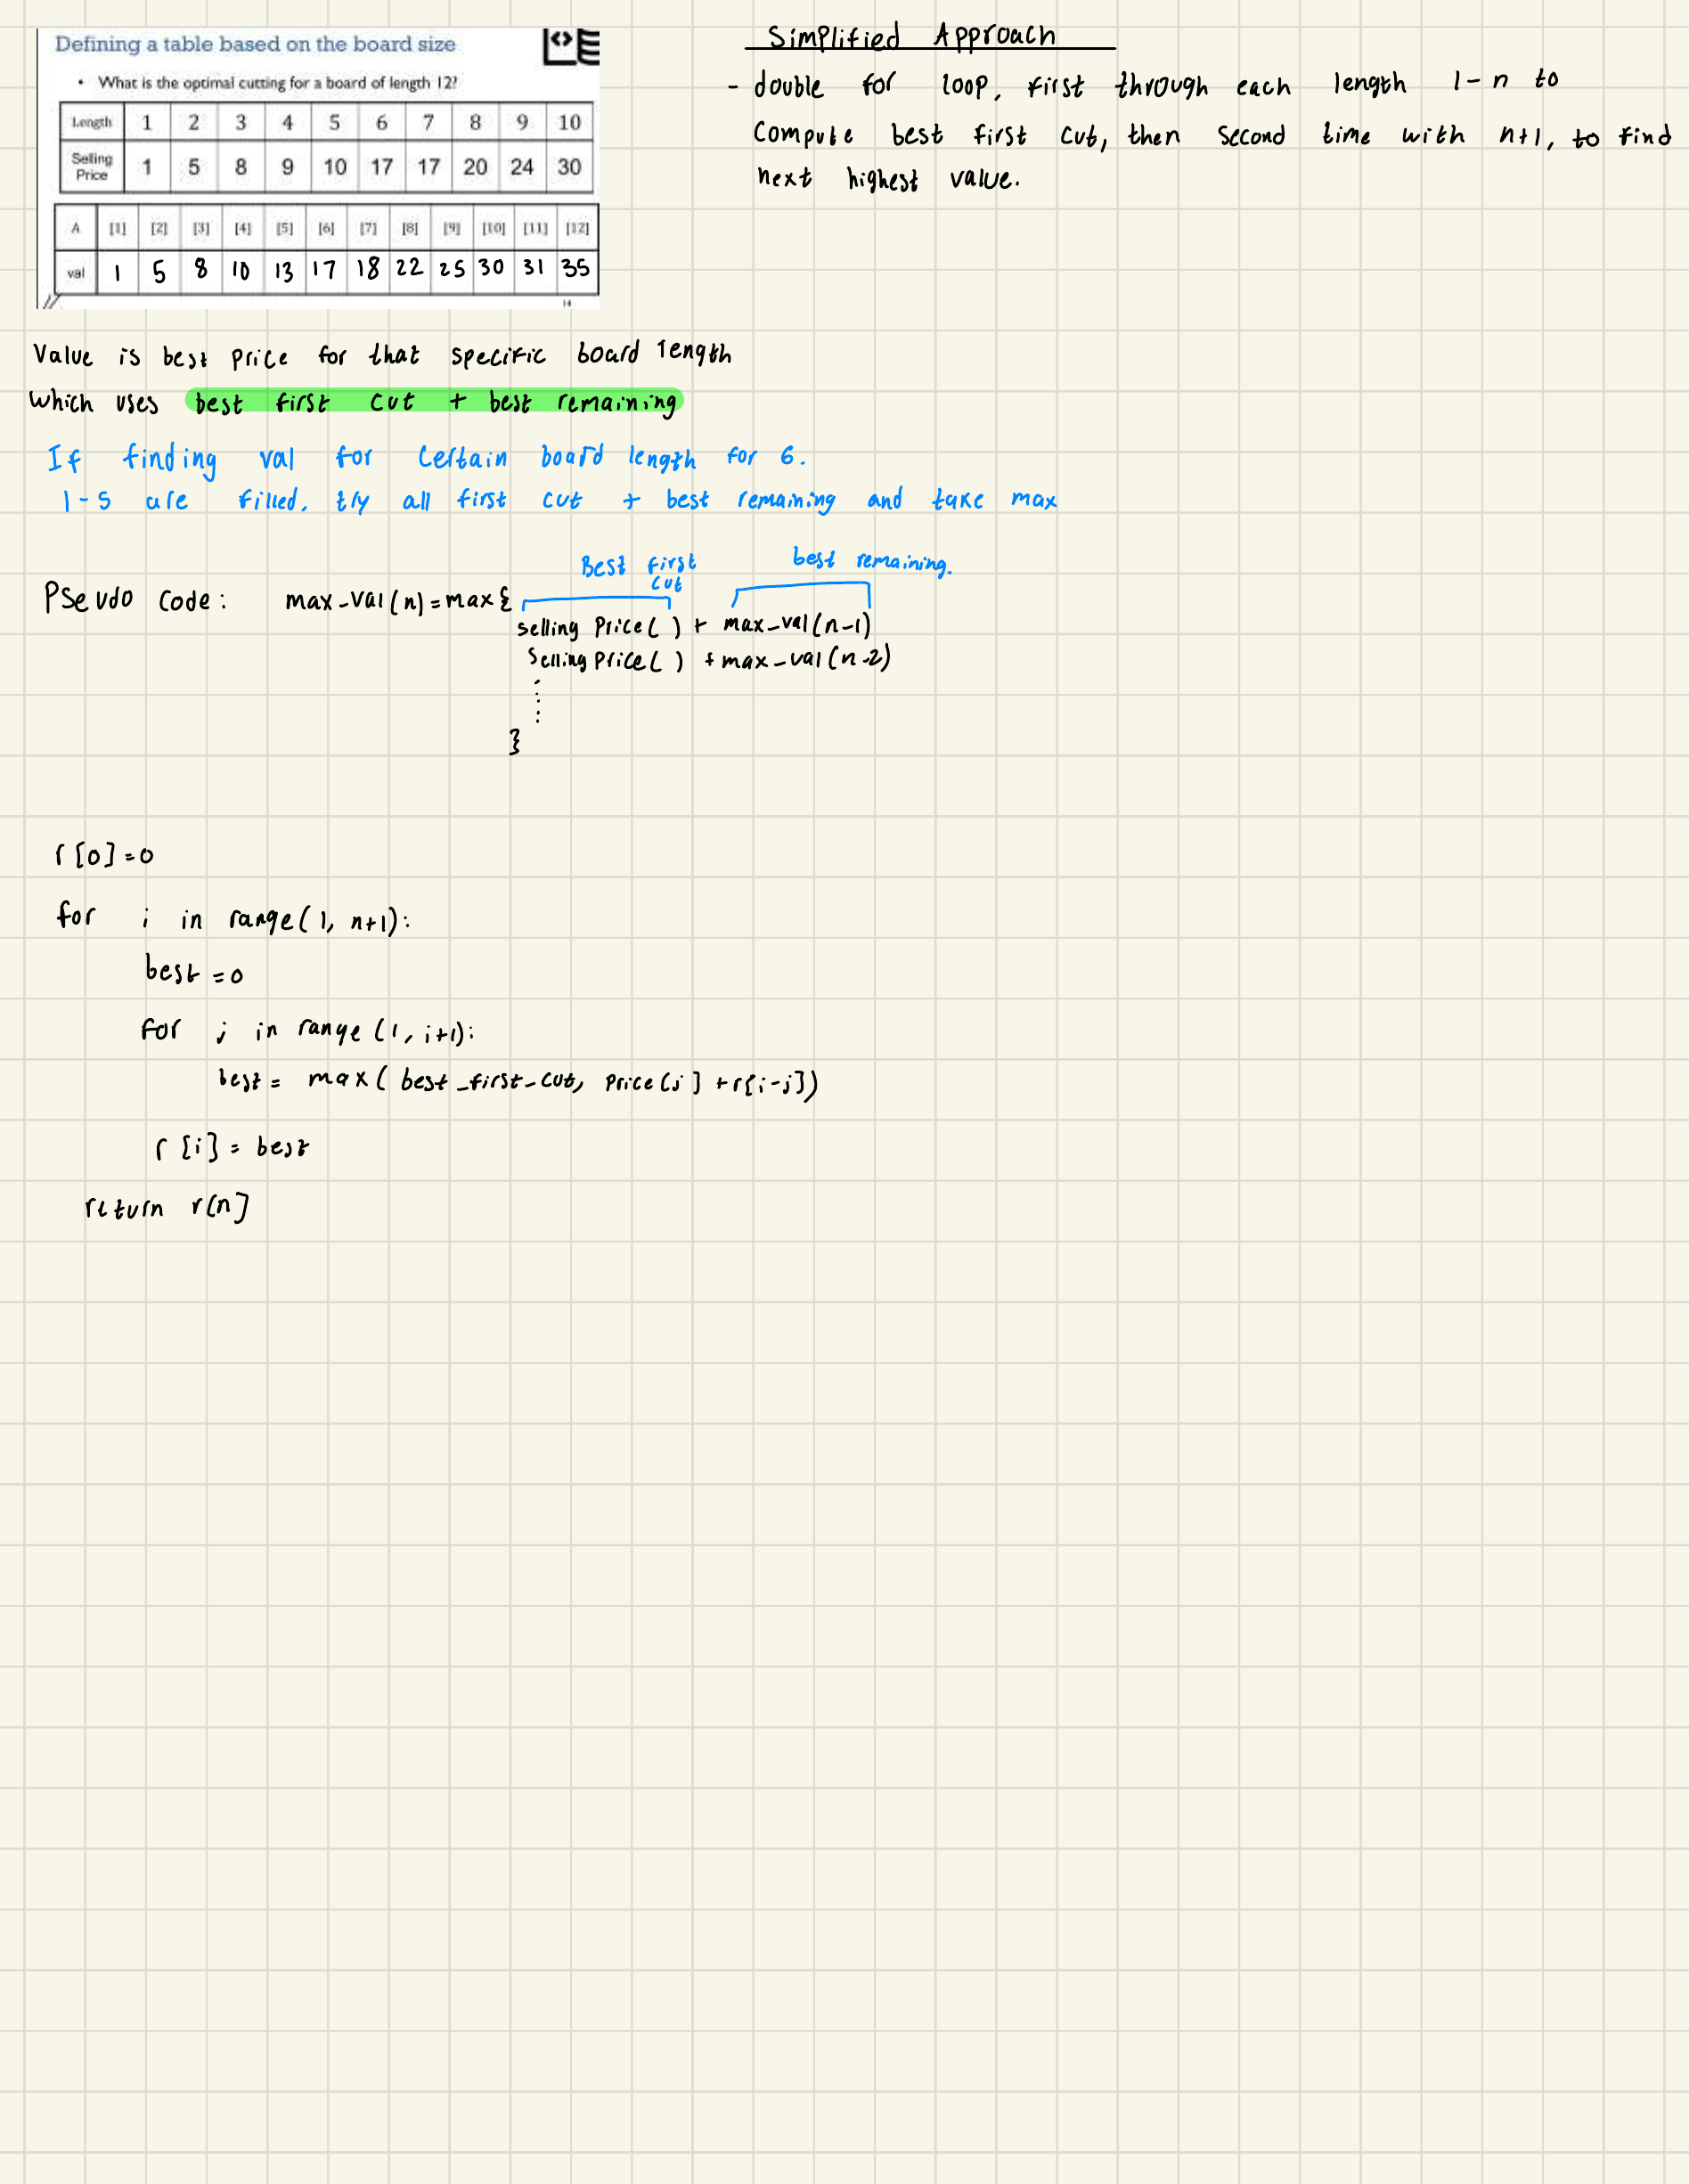 Defining a table based on the board size
• What is the optimal cutting for a board of length 12?
Length 1 2 3 4 5 6 7 8 9 10
Selling Price 1 5 8 9 10 17 17 20 24 30
A [1] [2] [3] [4] [5] [6] [7] [8] [9] [10] [11] [12]
val 1 5 8 10 13 17 18 22 25 30 31 35
14
Simplified Approach
- double for loop, first through each length 1-n to
compute best first cut, then second time with n+1, to find
next highest value.
Value is best price for that specific board length
which uses best first cut + best remaining
If finding val for certain board length for 6.
1-5 are filled, try all first cut + best remaining and take max
Best first cut
best remaining.
Pseudo code: max_val(n)=max{
selling Price( ) + max_val(n-1)
Selling Price( ) + max_val(n-2)
}
r[0]=0
for i in range(1, n+1):
best =0
for j in range (1, i+1):
best = max( best_first_cut, Price[j] +r[i-j])
r[i] = best
return r[n]